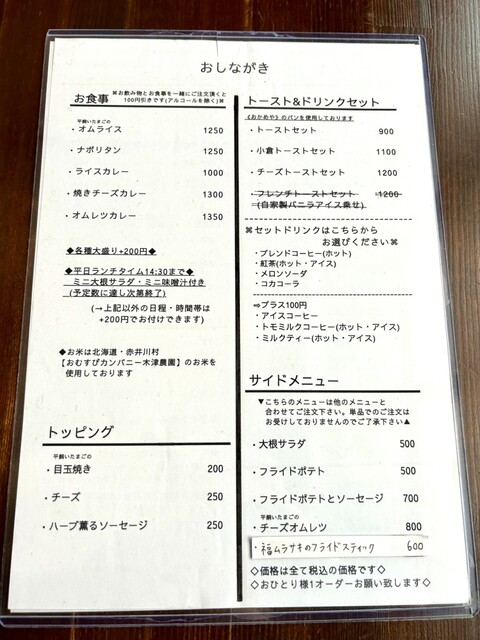 おしながき
お食事
※お飲み物とお食事を一緒にご注文頂くと
100円引きです(アルコールを除く)※
平飼いたまごの
・オムライス 1250
・ナポリタン 1250
・ライスカレー 1000
・焼きチーズカレー 1300
・オムレツカレー 1350
◆各種大盛り+200円◆
◆平日ランチタイム14:30まで◆
ミニ大根サラダ・ミニ味噌汁付き
(予定数に達し次第終了)
(→上記以外の日程・時間帯は
+200円でお付けできます)
◆お米は北海道・赤井川村
【おむすびカンパニー木津農園】のお米を
使用しております
トッピング
平飼いたまごの
・目玉焼き 200
・チーズ 250
・ハーブ薫るソーセージ 250
トースト&ドリンクセット
《おかめや》のパンを使用しております
・トーストセット 900
・小倉トーストセット 1100
・チーズトーストセット 1200
・フレンチトーストセット 1200
(自家製バニラアイス乗せ)
※セットドリンクはこちらから
お選びください※
・ブレンドコーヒー(ホット)
・紅茶(ホット・アイス)
・メロンソーダ
・コカコーラ
⇨プラス100円
・アイスコーヒー
・トモミルクコーヒー(ホット・アイス)
・ミルクティー(ホット・アイス)
サイドメニュー
▼こちらのメニューは他のメニューと
合わせてご注文下さい。単品でのご注文は
お受けしておりませんのでご了承下さい▲
・大根サラダ 500
・フライドポテト 500
・フライドポテトとソーセージ 700
平飼いたまごの
・チーズオムレツ 800
・福ムラサキのフライドスティック 600
◇価格は全て税込の価格です◇
◇おひとり様1オーダーお願い致します◇